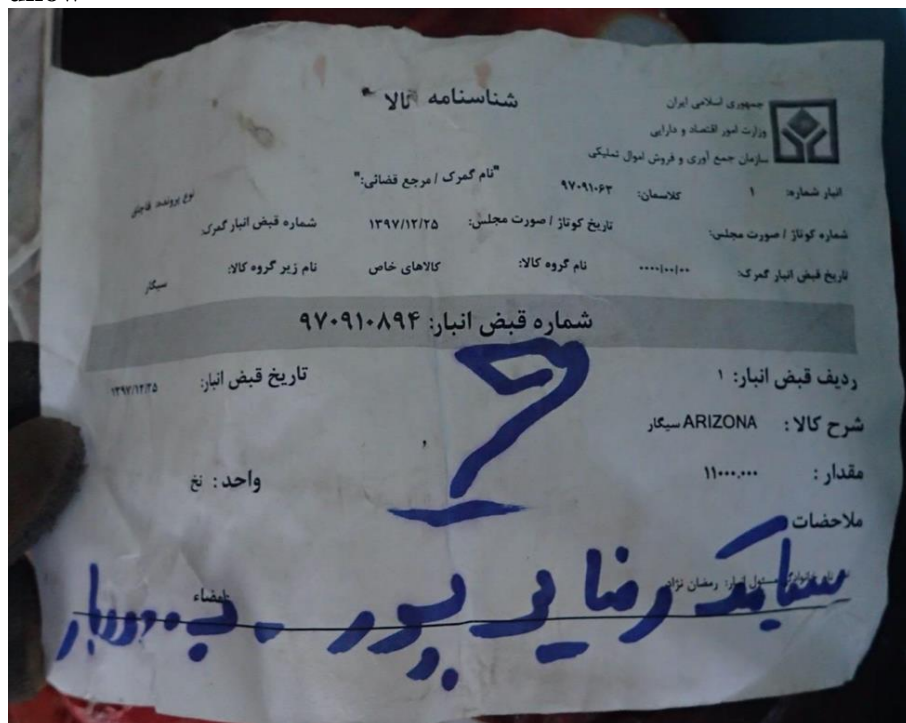 شناسنامه کالا
جمهوری اسلامی ایران
وزارت امور اقتصاد و دارایی
سازمان جمع آوری و فروش اموال تملیکی
انبار شماره: ۱ کلاسمان: ۹۷۰۹۱۰۶۳ "نام گمرک / مرجع قضائی:" نوع پرونده: قاچاق
شماره کوتاژ / صورت مجلس: تاریخ کوتاژ / صورت مجلس: ۱۳۹۷/۱۲/۲۵ شماره قبض انبار گمرک:
تاریخ قبض انبار گمرک: ۰۰۰۰/۰۰/۰۰ نام گروه کالا: کالاهای خاص نام زیر گروه کالا: سیگار
شماره قبض انبار: ۹۷۰۹۱۰۸۹۴
ردیف قبض انبار: ۱ تاریخ قبض انبار: ۱۳۹۷/۱۲/۲۵
شرح کالا : ARIZONA سیگار
مقدار : ۱۱۰۰۰.۰۰۰ واحد : نخ
ملاحضات
مسئول انبار: رمضان نژاد امضاء
سیامک رضایی پور